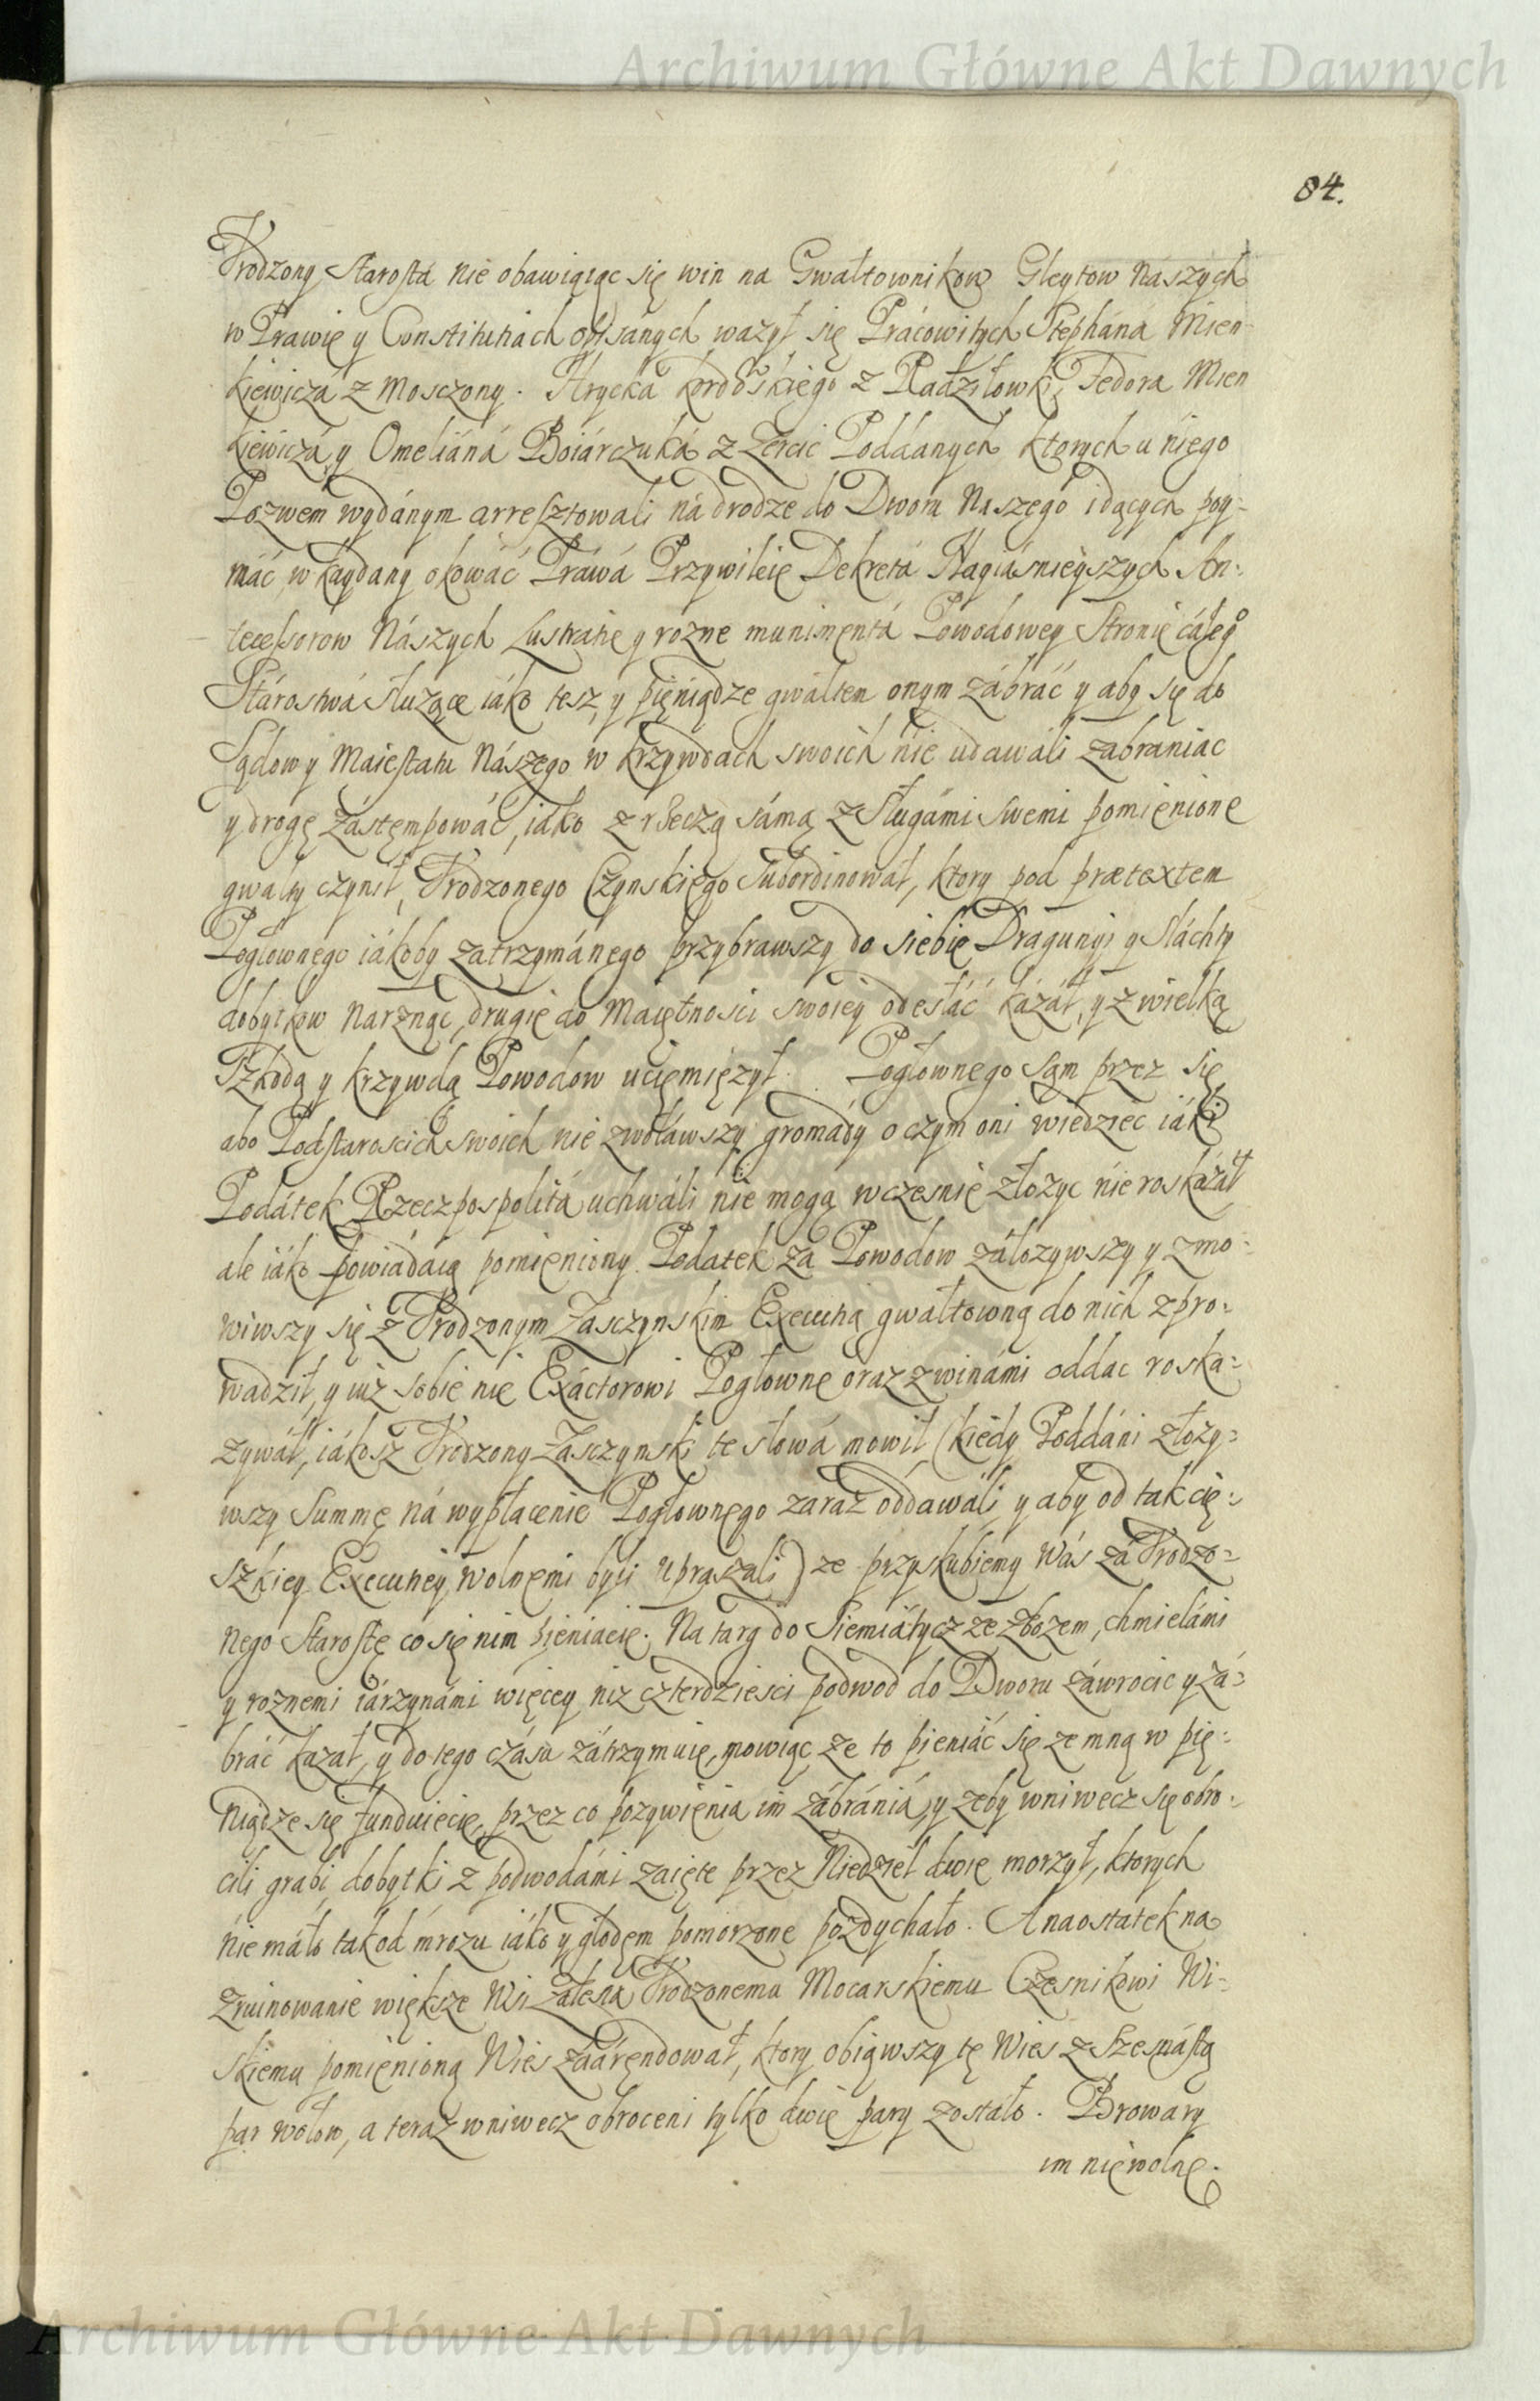 Archiwum Główne Akt Dawnych
84.
Urodzony Starosta nie obawiaiąc się win na Gwałtownikow Gleytow Nászych
w Prawie y Constitutiach opisánych ważył się Prácowitych Stephána Mien-
kiewiczá z Mosczony. Hrycka z Radziłowki, Fedora Mien
kiewiczá y Omeliáná Boiárczuká z Zercic Poddanych ktorych u niego
Pozwem wydánym arresztowali ná drodze do Dworu Naszego idących poy-
máć, w kaydany okowáć Práwá Przywileie Dekretá Nayiásnieyszych An:
tecessorow Nászych Lustratie y rozne munimentá Powodowey Stronie cáłego
Stárostwá służące iáko tesz y pięniądze gwałtem onym zábráć y aby się do
Sądow y Maiestatu Nászego w krzywdach swoich nie udawáli zabraniac
y drogę zástempowáć, iáko z rzeczą sámą z Sługámi swemi pomienione
gwałty czynił, Urodzonego Subordinował, ktory pod prætextem
Pogłownego iákoby zatrzymánego przybrawszy do siebie Dragunyi y Sláchty
dobytkow narznąc, drugie do Maiętnosci swoiey odesłáć kázáł, y z wielką
Szkodą y krzywdą Powodow uciemiężył. Pogłownego sam przez się
abo Podstaroscich swoich nie zwoławszy gromády o czym oni wiedziec iáki
Podátek Rzeczpospolitá uchwáli nie mogą wczesnie złozyc nie roskázáł
ale iáko powiádaią pomieniony Podatek za Powodow záłozywszy y zmo-
wiwszy się z Urodzonym Zasczynskim Executią gwałtowną do nich zpro-
wadził, y iuż sobie nie Exáctorowi Pogłowne oraz z winámi oddac roska-
zywáł, iákosz Urodzony Zasczynski te słowá mowił (kiedy Poddáni złozy-
wszy Summę ná wypłacenie Pogłownego zaraz oddawáli y aby od tak cię-
szkiey Executiey wolnemi byli upraszali) ze przyskubiemy Wás zá Urodzo-
nego Starostę co się nim pieniacie. Na targ do Siemiátycz ze zbozem, chmielámi
y roznemi iárzynámi więcey niz czterdziesci podwod do Dworu záwrocic y zá-
bráć kazał, y do tego czásu zátrzymuie, mowiąc ze to pieniáć się ze mną w pię-
niądze się funduiecie, przez co pozywienia im zábrániá, y zeby wniwecz się obro-
cili grabi, dobytki z podwodámi zaięte przez Niedziel dwie morzył, ktorych
nie máło tak od mrozu iáko y głodem pomorzone pozdychało. A naostatek na
zruinowanie większe Wsi Zalesia Urodzonemu Mocarskiemu Czesnikowi Wi-
skiemu pomienioną Wies zaárendował, ktory obiąwszy tę Wies z szesnástą
par wołow, a teraz wniwecz obroceni tylko dwie pary zostáło. Browary
im niewolne.
Archiwum Główne Akt Dawnych